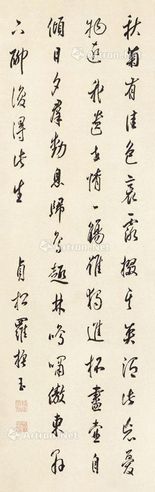 秋菊有佳色裛露掇其英泛此忘憂
物遠我遺世情一觴雖獨進杯盡壺自
傾日夕群動息歸鳥趨林鳴嘯傲東軒
下聊復得此生
貞松羅振玉